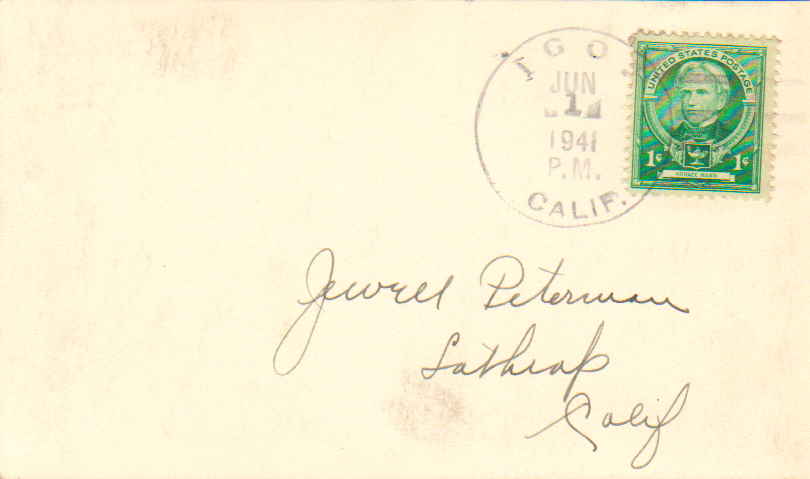 IGO
JUN
1
1941
P.M.
CALIF.
UNITED STATES POSTAGE
1¢ 1¢
HORACE MANN
Jewell Peterman
Lathrop
Calif